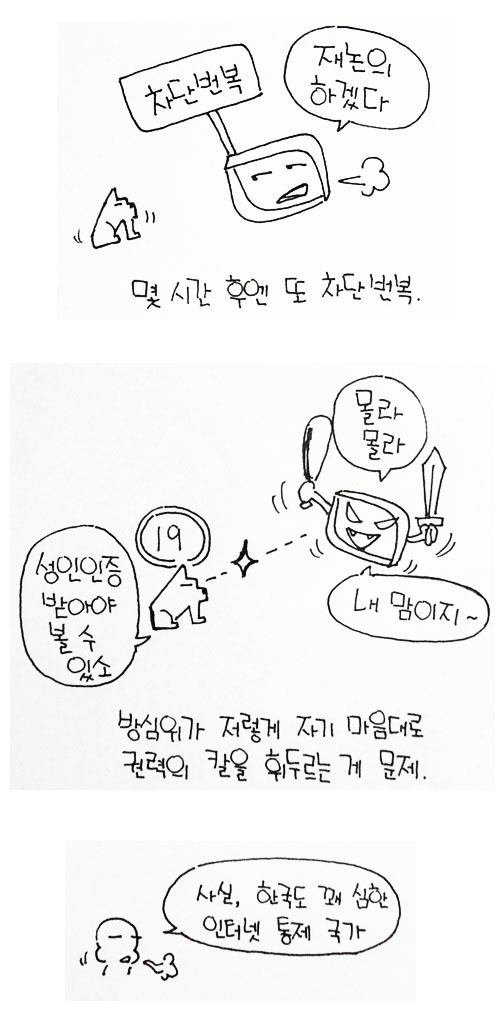 차단번복
재논의
하겠다
몇 시간 후엔 또 차단번복.
몰라
몰라
19
성인인증
받아야
볼 수
있소
내 맘이지~
방심위가 저렇게 자기 마음대로
권력의 칼을 휘두르는 게 문제.
사실, 한국도 꽤 심한
인터넷 통제 국가